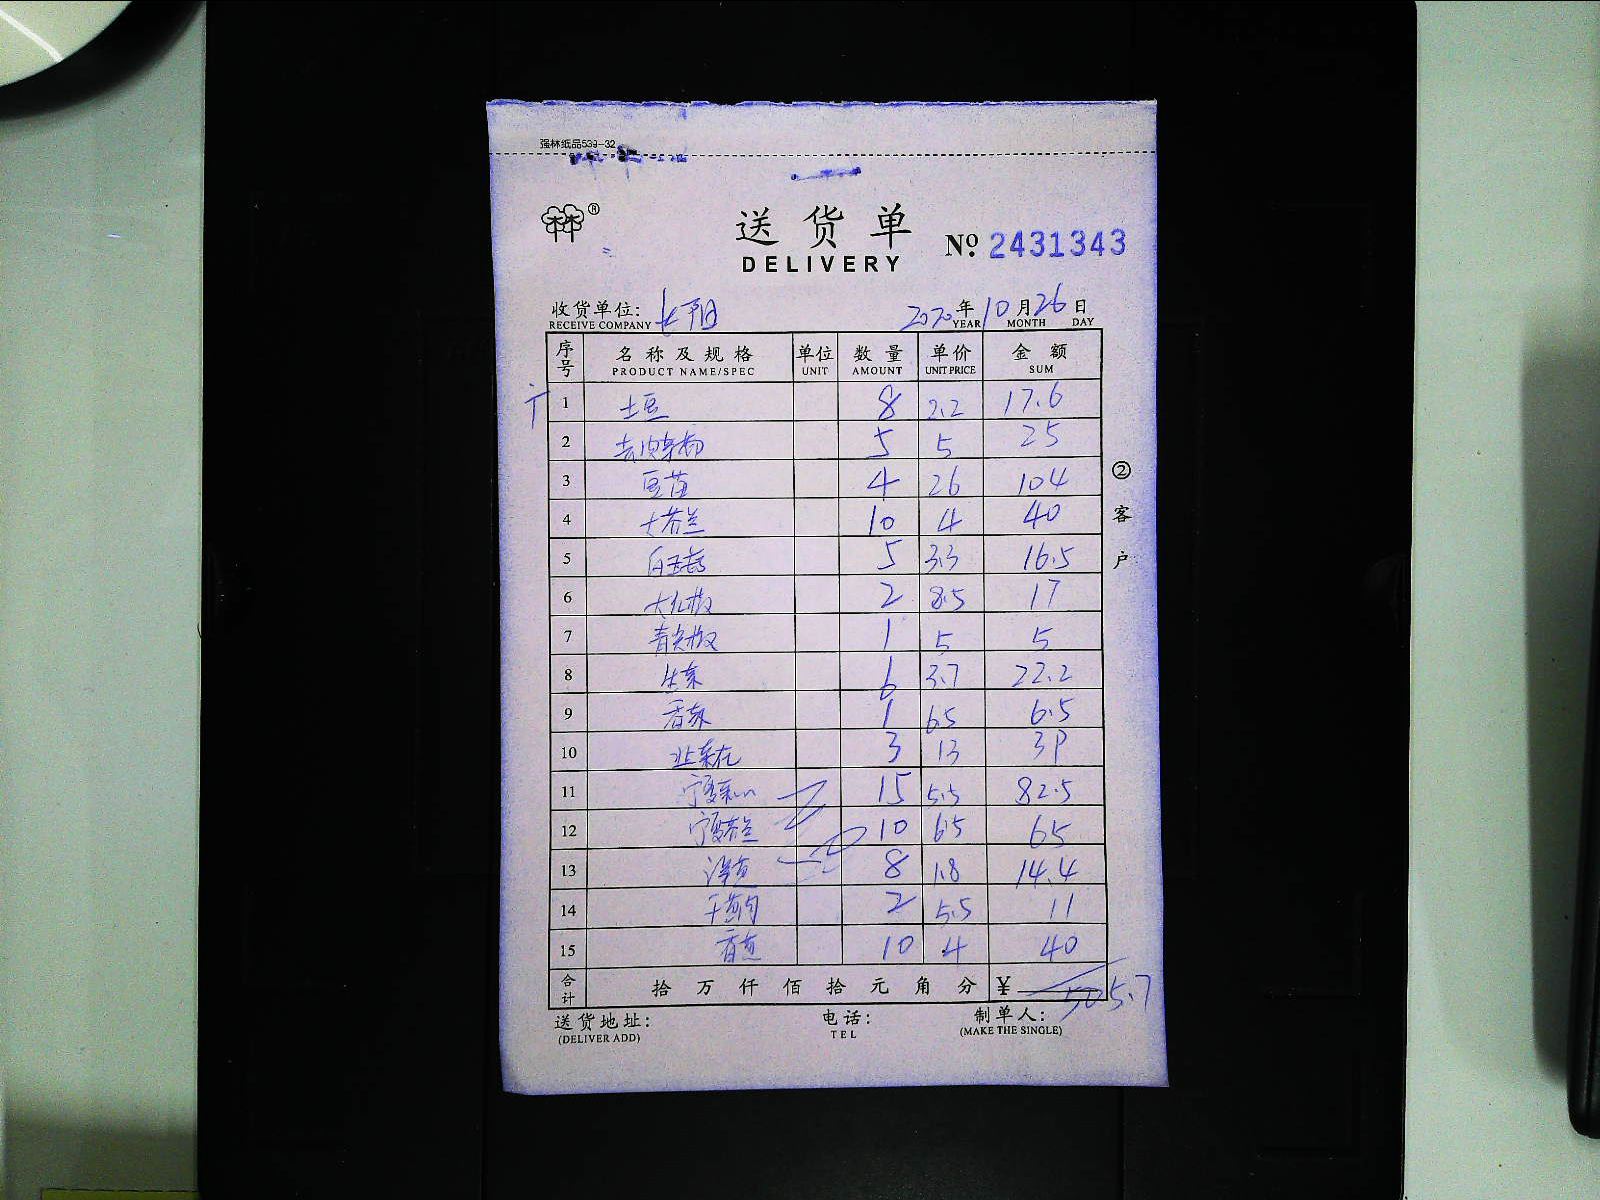 强林纸品539-32
林林®
送货单
DELIVERY
Nº 2431343
收货单位: 长阳 2020年10月26日
RECEIVE COMPANY YEAR MONTH DAY
序号 名称及规格 单位 数量 单价 金额
PRODUCT NAME/SPEC UNIT AMOUNT UNIT PRICE SUM
1 土豆 8 2.2 17.6
2 去皮 5 5 25
3 豆苗 4 26 104
4 大芥兰 10 4 40
5 白玉菇 5 3.3 16.5
6 大红椒 2 8.5 17
7 青尖椒 1 5 5
8 生菜 6 3.7 22.2
9 香菜 1 6.5 6.5
10 韭菜花 3 13 39
11 宁夏菜心 15 5.5 82.5
12 宁夏芥兰 10 6.5 65
13 8 1.8 14.4
14 2 5.5 11
15 10 4 40
合计 拾 万 仟 佰 拾 元 角 分 ¥ 505.7
送货地址: 电话: 制单人:
(DELIVER ADD) TEL (MAKE THE SINGLE)
②客户